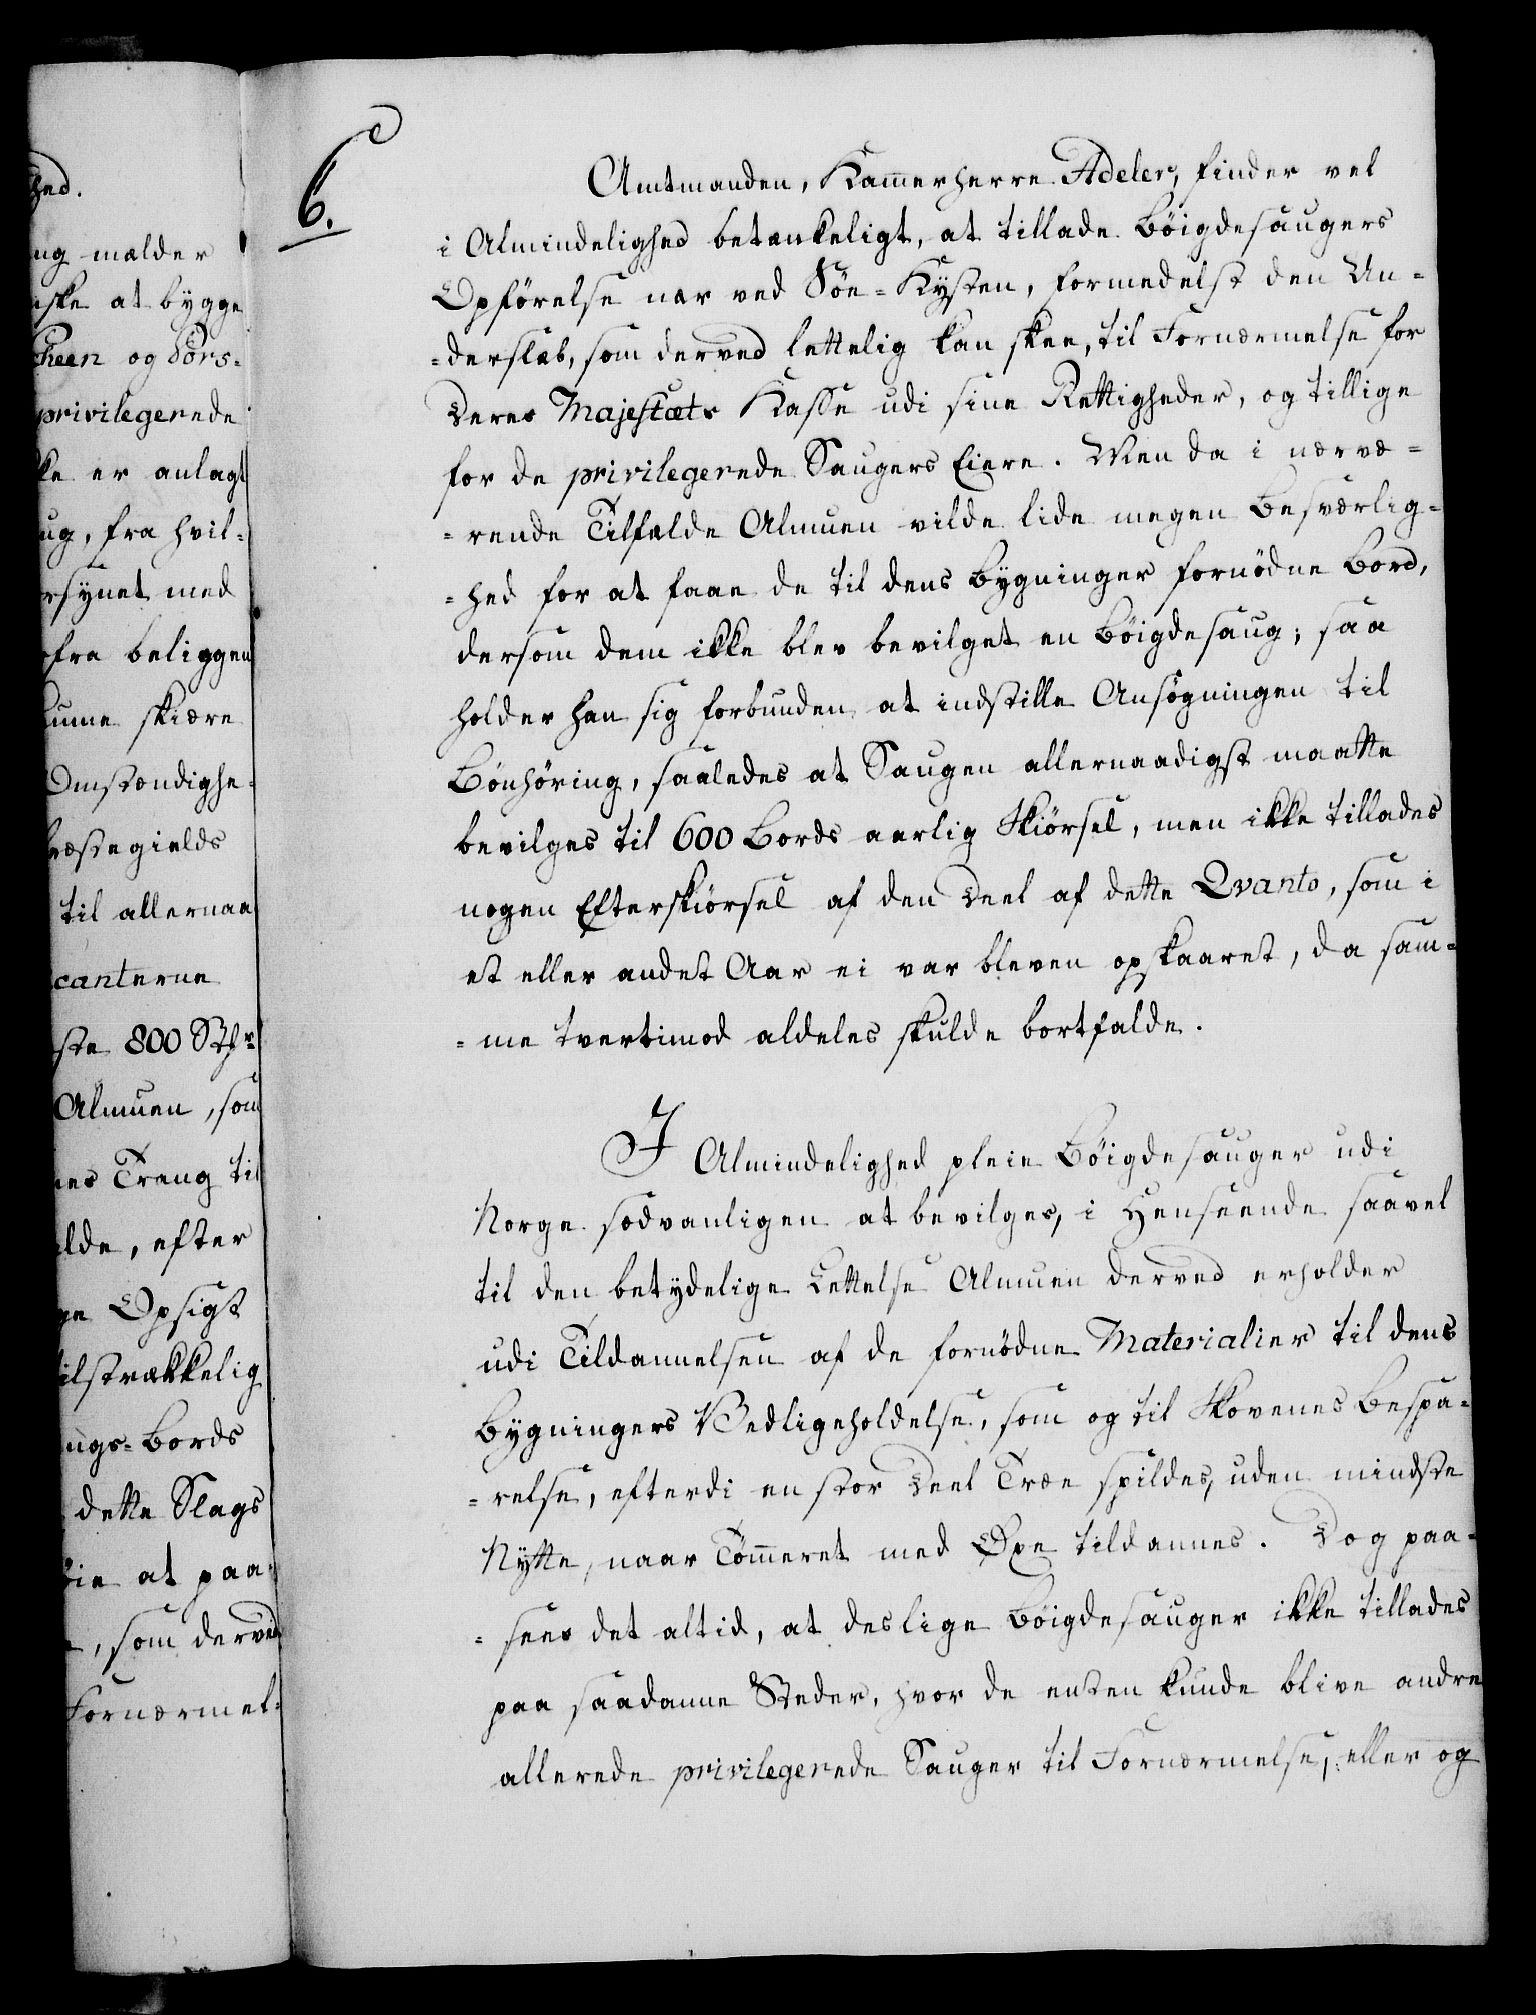 hed.
ug melder
nske at bygge
Theen og Dörs-
privilegerede
ke er anlagt
ug, fra hvil-
rsÿnet med
fra beliggen
kunne skiære
Omstændighe-
ræstegields
til allernaa
canterne
ste 800 Rthr
Almuen, som
nes Trang til
lde, efter
ge Opsigt
ilstrækkelig
ugs-Bords
dette Slags
öie at paa-
, som derved
Fornærmel-
6.
Amtmanden, Kammerherre Adeler, finder vel
i Almindelighed betænkeligt, at tillade Böigdesaugers
Opförelse nær ved Söe-Kysten, formedelst den Un-
-derslæb, som derved lettelig kan skee, til Fornærmelse for
Deres Majestæts Kasse udi sine Rettigheder, og tillige
for de privilegerede Saugers Eiere. Men da i nærvæ-
-rende Tilfælde Almuen vilde lide megen Besværlig-
-hed for at faae de til dens Bygninger fornödne Bord,
dersom dem ikke blev bevilget en Böigdesaug; saa
holder han sig forbunden at indstille Ansögningen til
Bönhöring, saaledes at Saugen allernaadigst maatte
bevilges til 600 Bords aarlig Skiörsel, men ikke tillades
nogen Efterskiörsel af den Deel af dette Qvanto, som i
et eller andet Aar ei var bleven opskaaret, da sam-
-me tvertimod aldeles skulde bortfalde.
I Almindelighed pleie Böigdesauger udi
Norge sædvanligen at bevilges, i Henseende saavel
til den betydelige Lettelse Almuen derved erholder
udi Tildannelsen af de fornödne Materialier til dens
Bygningers Vedligeholdelse, som og til Skovenes Bespa-
-relse, efterdi en stor Deel Træe spildes, uden mindste
Nytte, naar Tömmeret med Øxe tildannes. Dog paa-
-sees det altid, at deslige Böigdesauger ikke tillades
paa saadanne Steder, hvor de enten kunde blive andre
allerede privilegerede Sauger til Fornærmelse, eller og